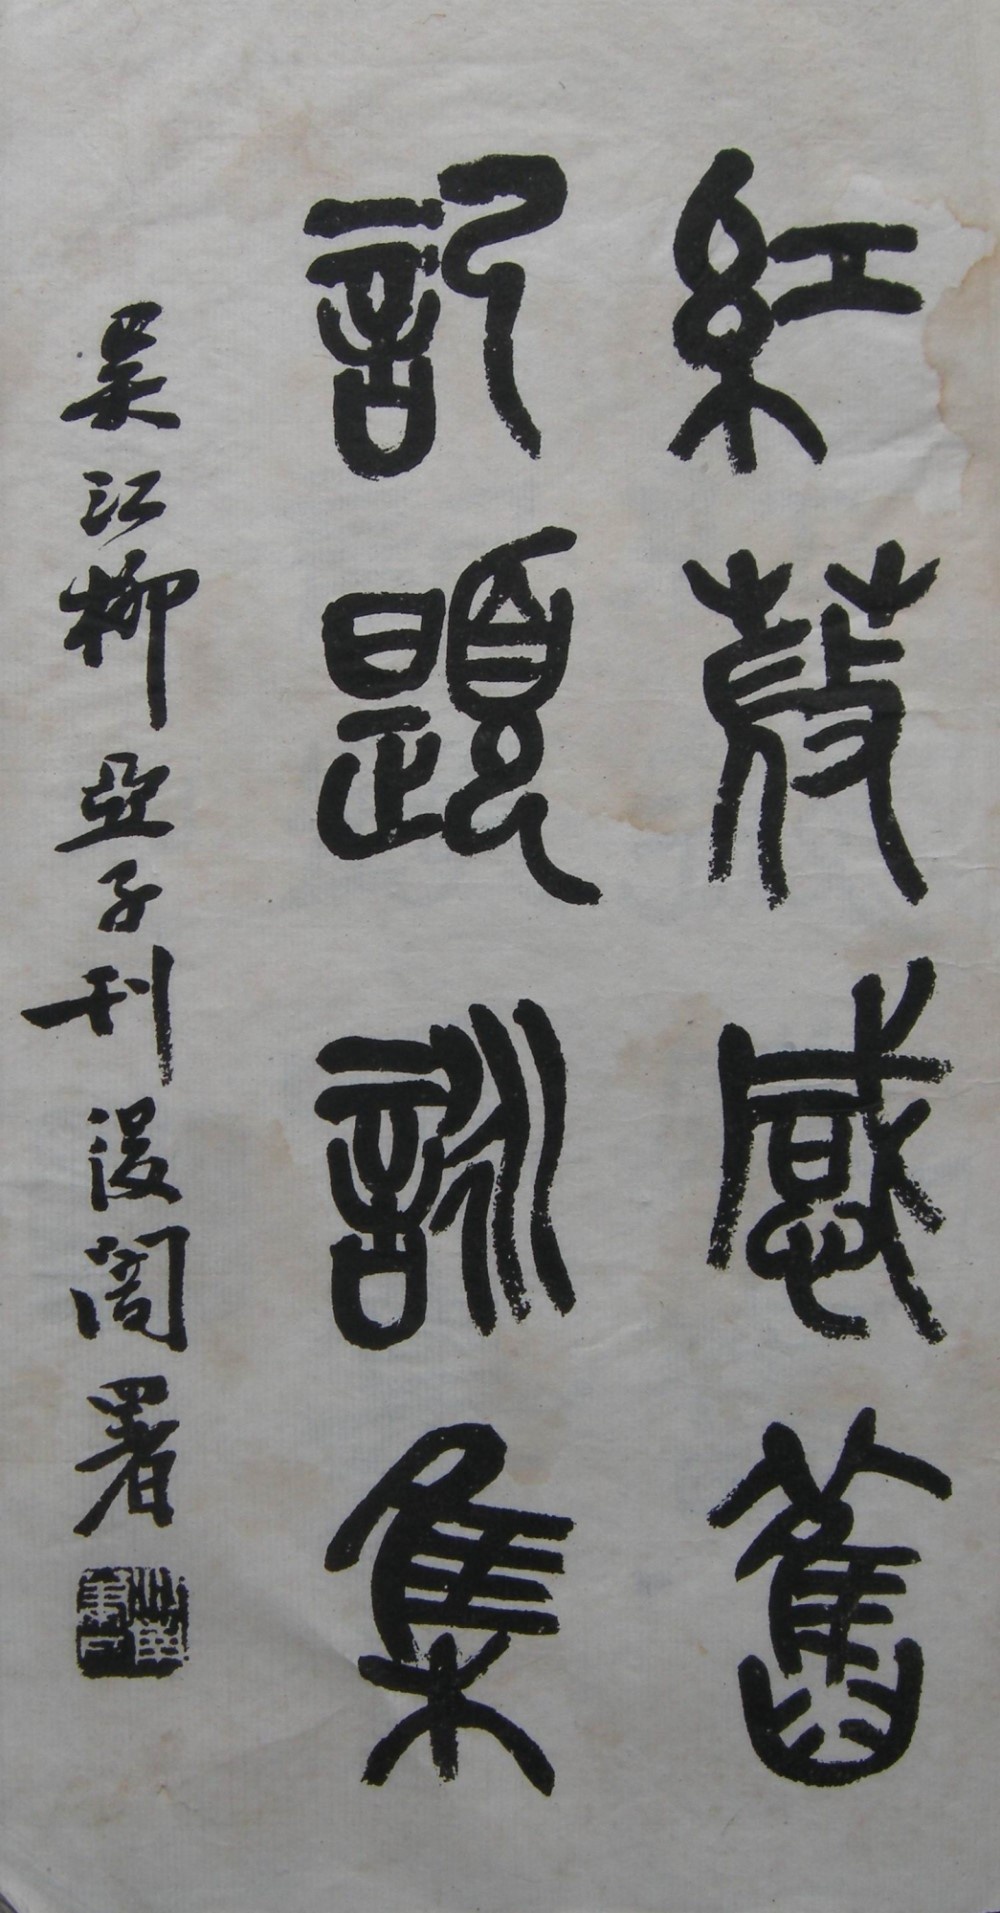 紅薇感舊
記題詠集
吳江柳亞子刊 闇署